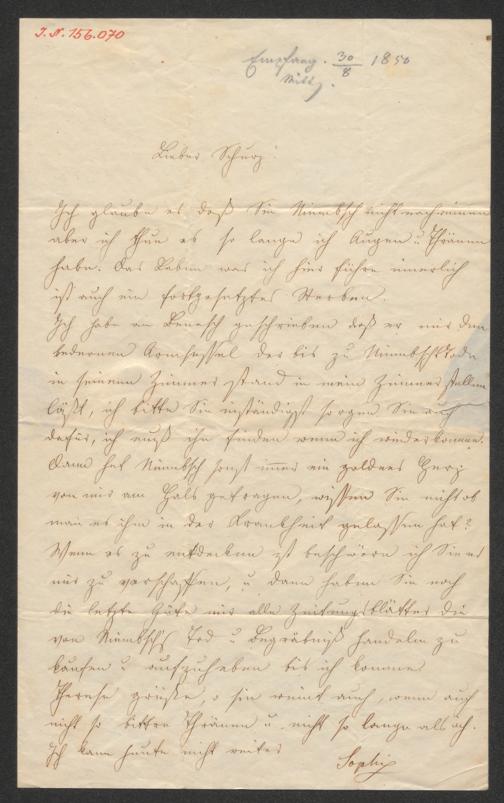 I.N. 156.070
Empfang. 30/8 1850
Lieber Schurz
Ich glaube es daß Sie Niembsch nicht nachweinen
aber ich thue es so lange ich Augen u Thränen
habe. Das Leben was ich hier führe innerlich
ist auch ein fortgesetztes Sterben.
Ich habe an Benesch geschrieben daß er mir den
ledernen Armsessel der bis zu Niembsch Tode
in seinem Zimmer stand in mein Zimmer stellen
läßt, ich bitte Sie inständigst sorgen Sie auch
dafür, ich muß ihn finden wenn ich wiederkomme.
Dann hat Niembsch sonst immer ein goldnes Herz
von mir am Hals getragen, wissen Sie nicht ob
man es ihm in der Krankheit gelassen hat?
Wenn es zu entdecken ist beschwöre ich Sie es
mir zu verschaffen, u dann haben Sie noch
die letzte Güte mir alle Zeitungsblätter die
von Niembsch's Tod u Begräbniß handeln zu
kaufen u aufzuheben bis ich komme
Therese grüße, o sie weint auch, wenn auch
nicht so bittre Thränen u nicht so lange als ich.
Ich kann heute nicht weiter
Sophie